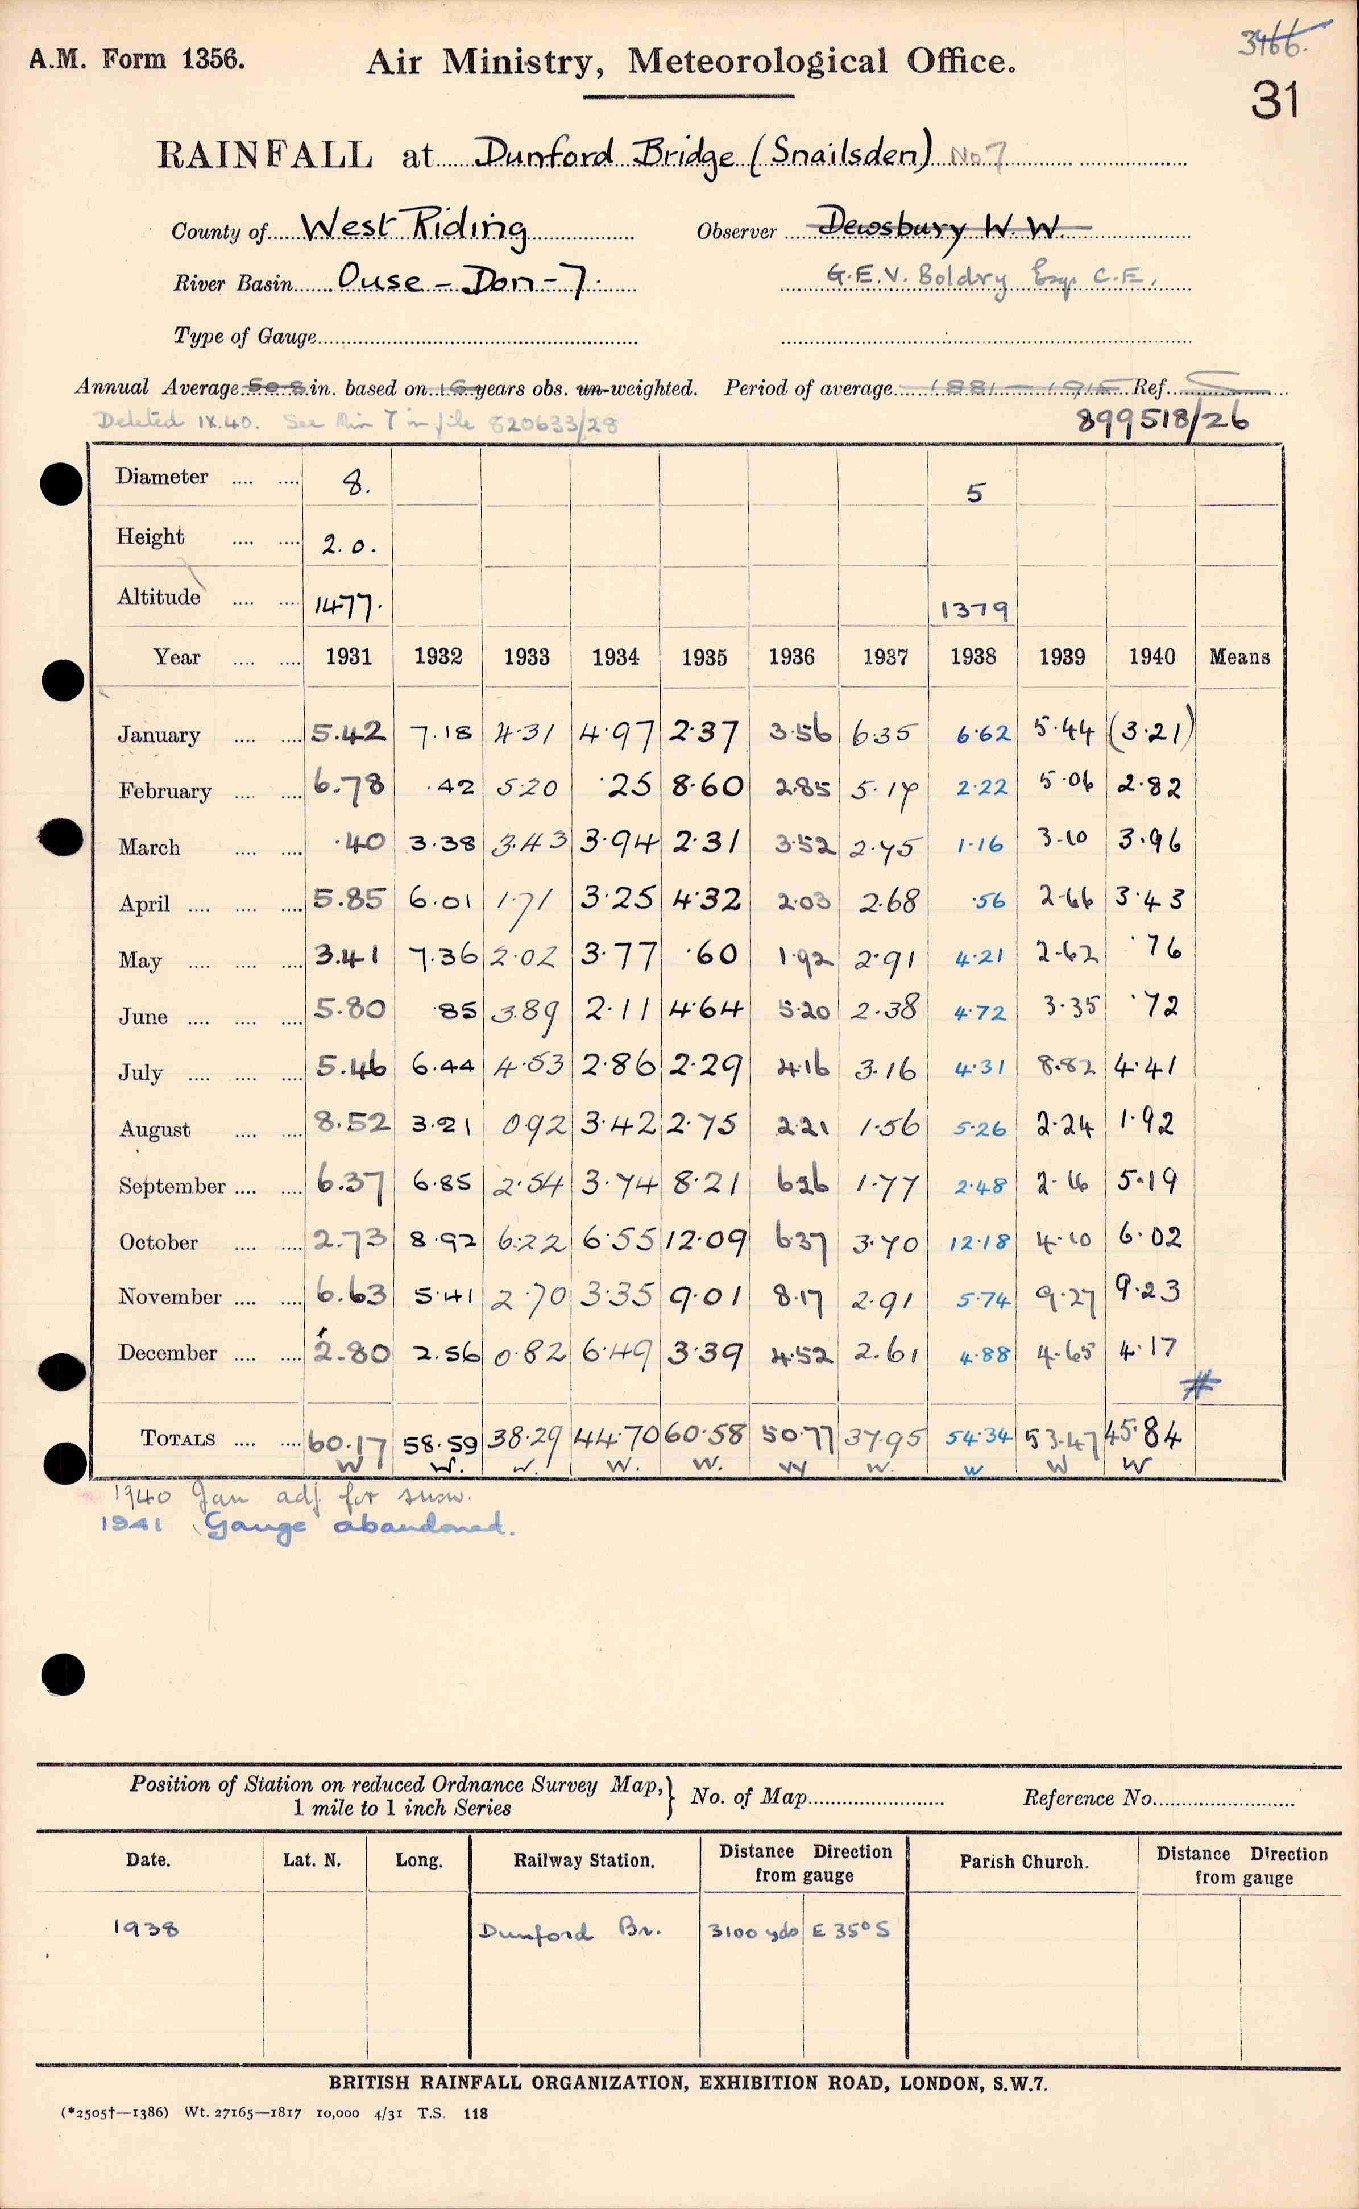 A.M. Form 1356.
Air Ministry, Meteorological Office.
3466.
31
RAINFALL at Dunford Bridge (Snailsden) No 7
County of West Riding Observer Dewsbury W. W.
River Basin Ouse - Don - 7. G.E.V. Boldry Esq. C.E.
Type of Gauge
Annual Average 50.8 in. based on 16 years obs. un-weighted. Period of average 1881 - 1915 Ref. S
Deleted IX.40. See Min 7 in file 820633/28 899518/26
Diameter 8. 5
Height 2.0.
Altitude 1477. 1379
Year 1931 1932 1933 1934 1935 1936 1937 1938 1939 1940 Means
January 5.42 7.18 4.31 4.97 2.37 3.56 6.35 6.62 5.44 (3.21)
February 6.78 .42 5.20 .25 8.60 2.85 5.17 2.22 5.06 2.82
March .40 3.38 3.43 3.94 2.31 3.52 2.75 1.16 3.10 3.96
April 5.85 6.01 1.71 3.25 4.32 2.03 2.68 .56 2.66 3.43
May 3.41 7.36 2.02 3.77 .60 1.92 2.91 4.21 2.62 .76
June 5.80 .85 3.89 2.11 4.64 5.20 2.38 4.72 3.35 .72
July 5.46 6.44 4.53 2.86 2.29 4.16 3.16 4.31 8.82 4.41
August 8.52 3.21 0.92 3.42 2.75 2.21 1.56 5.26 2.24 1.92
September 6.37 6.85 2.54 3.74 8.21 6.26 1.77 2.48 2.16 5.19
October 2.73 8.92 6.22 6.55 12.09 6.37 3.70 12.18 4.10 6.02
November 6.63 5.41 2.70 3.35 9.01 8.17 2.91 5.74 9.27 9.23
December 2.80 2.56 0.82 6.49 3.39 4.52 2.61 4.88 4.65 4.17
#
TOTALS 60.17 58.59 38.29 44.70 60.58 50.77 37.95 54.34 53.47 45.84
W W. W. W. W. W W. W W W
1940 Jan adj for snow.
1941 Gauge abandoned.
Position of Station on reduced Ordnance Survey Map,} No. of Map Reference No.
1 mile to 1 inch Series
Date. Lat. N. Long. Railway Station. Distance Direction from gauge Parish Church. Distance Direction from gauge
1938 Dunford Br. 3100 yds E 35° S
BRITISH RAINFALL ORGANIZATION, EXHIBITION ROAD, LONDON, S.W.7.
(*2505†—1386) Wt. 27165—1817 10,000 4/31 T.S. 118